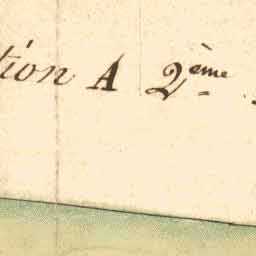 tion A 2ème